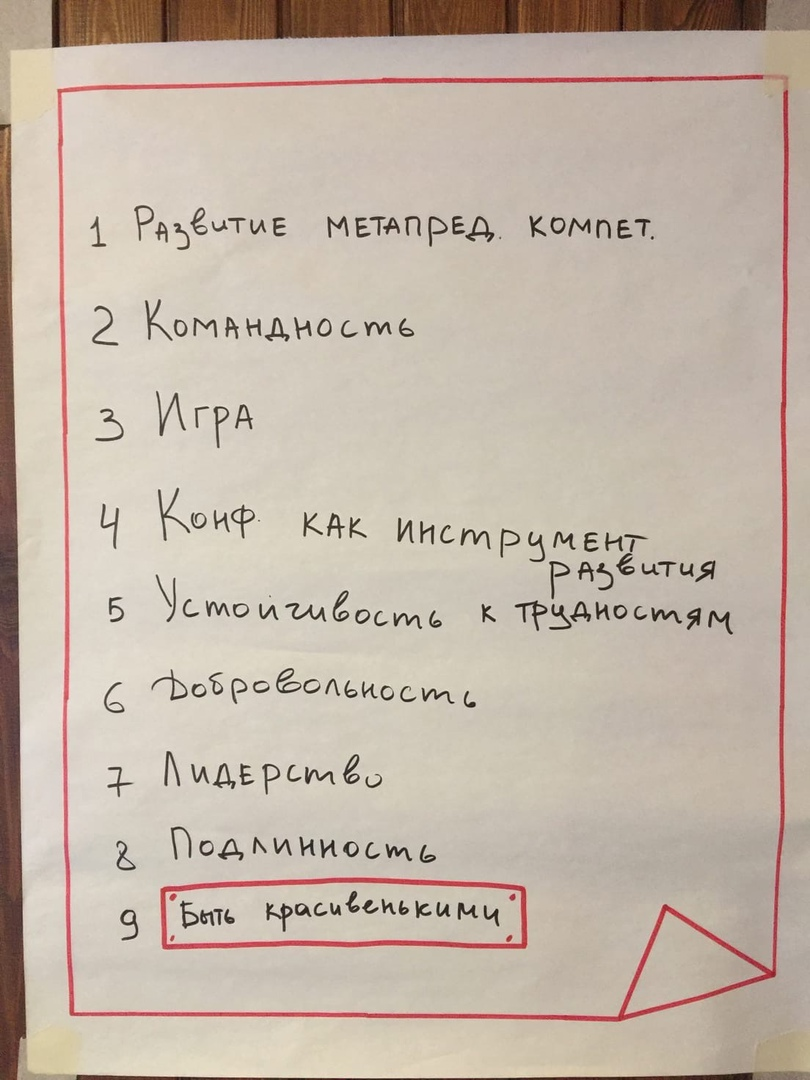 1 Развитие метапред. компет.
2 Командность
3 Игра
4 Конф. как инструмент
развития
5 Устойчивость к трудностям
6 Добровольность
7 Лидерство
8 Подлинность
9 Быть красивенькими